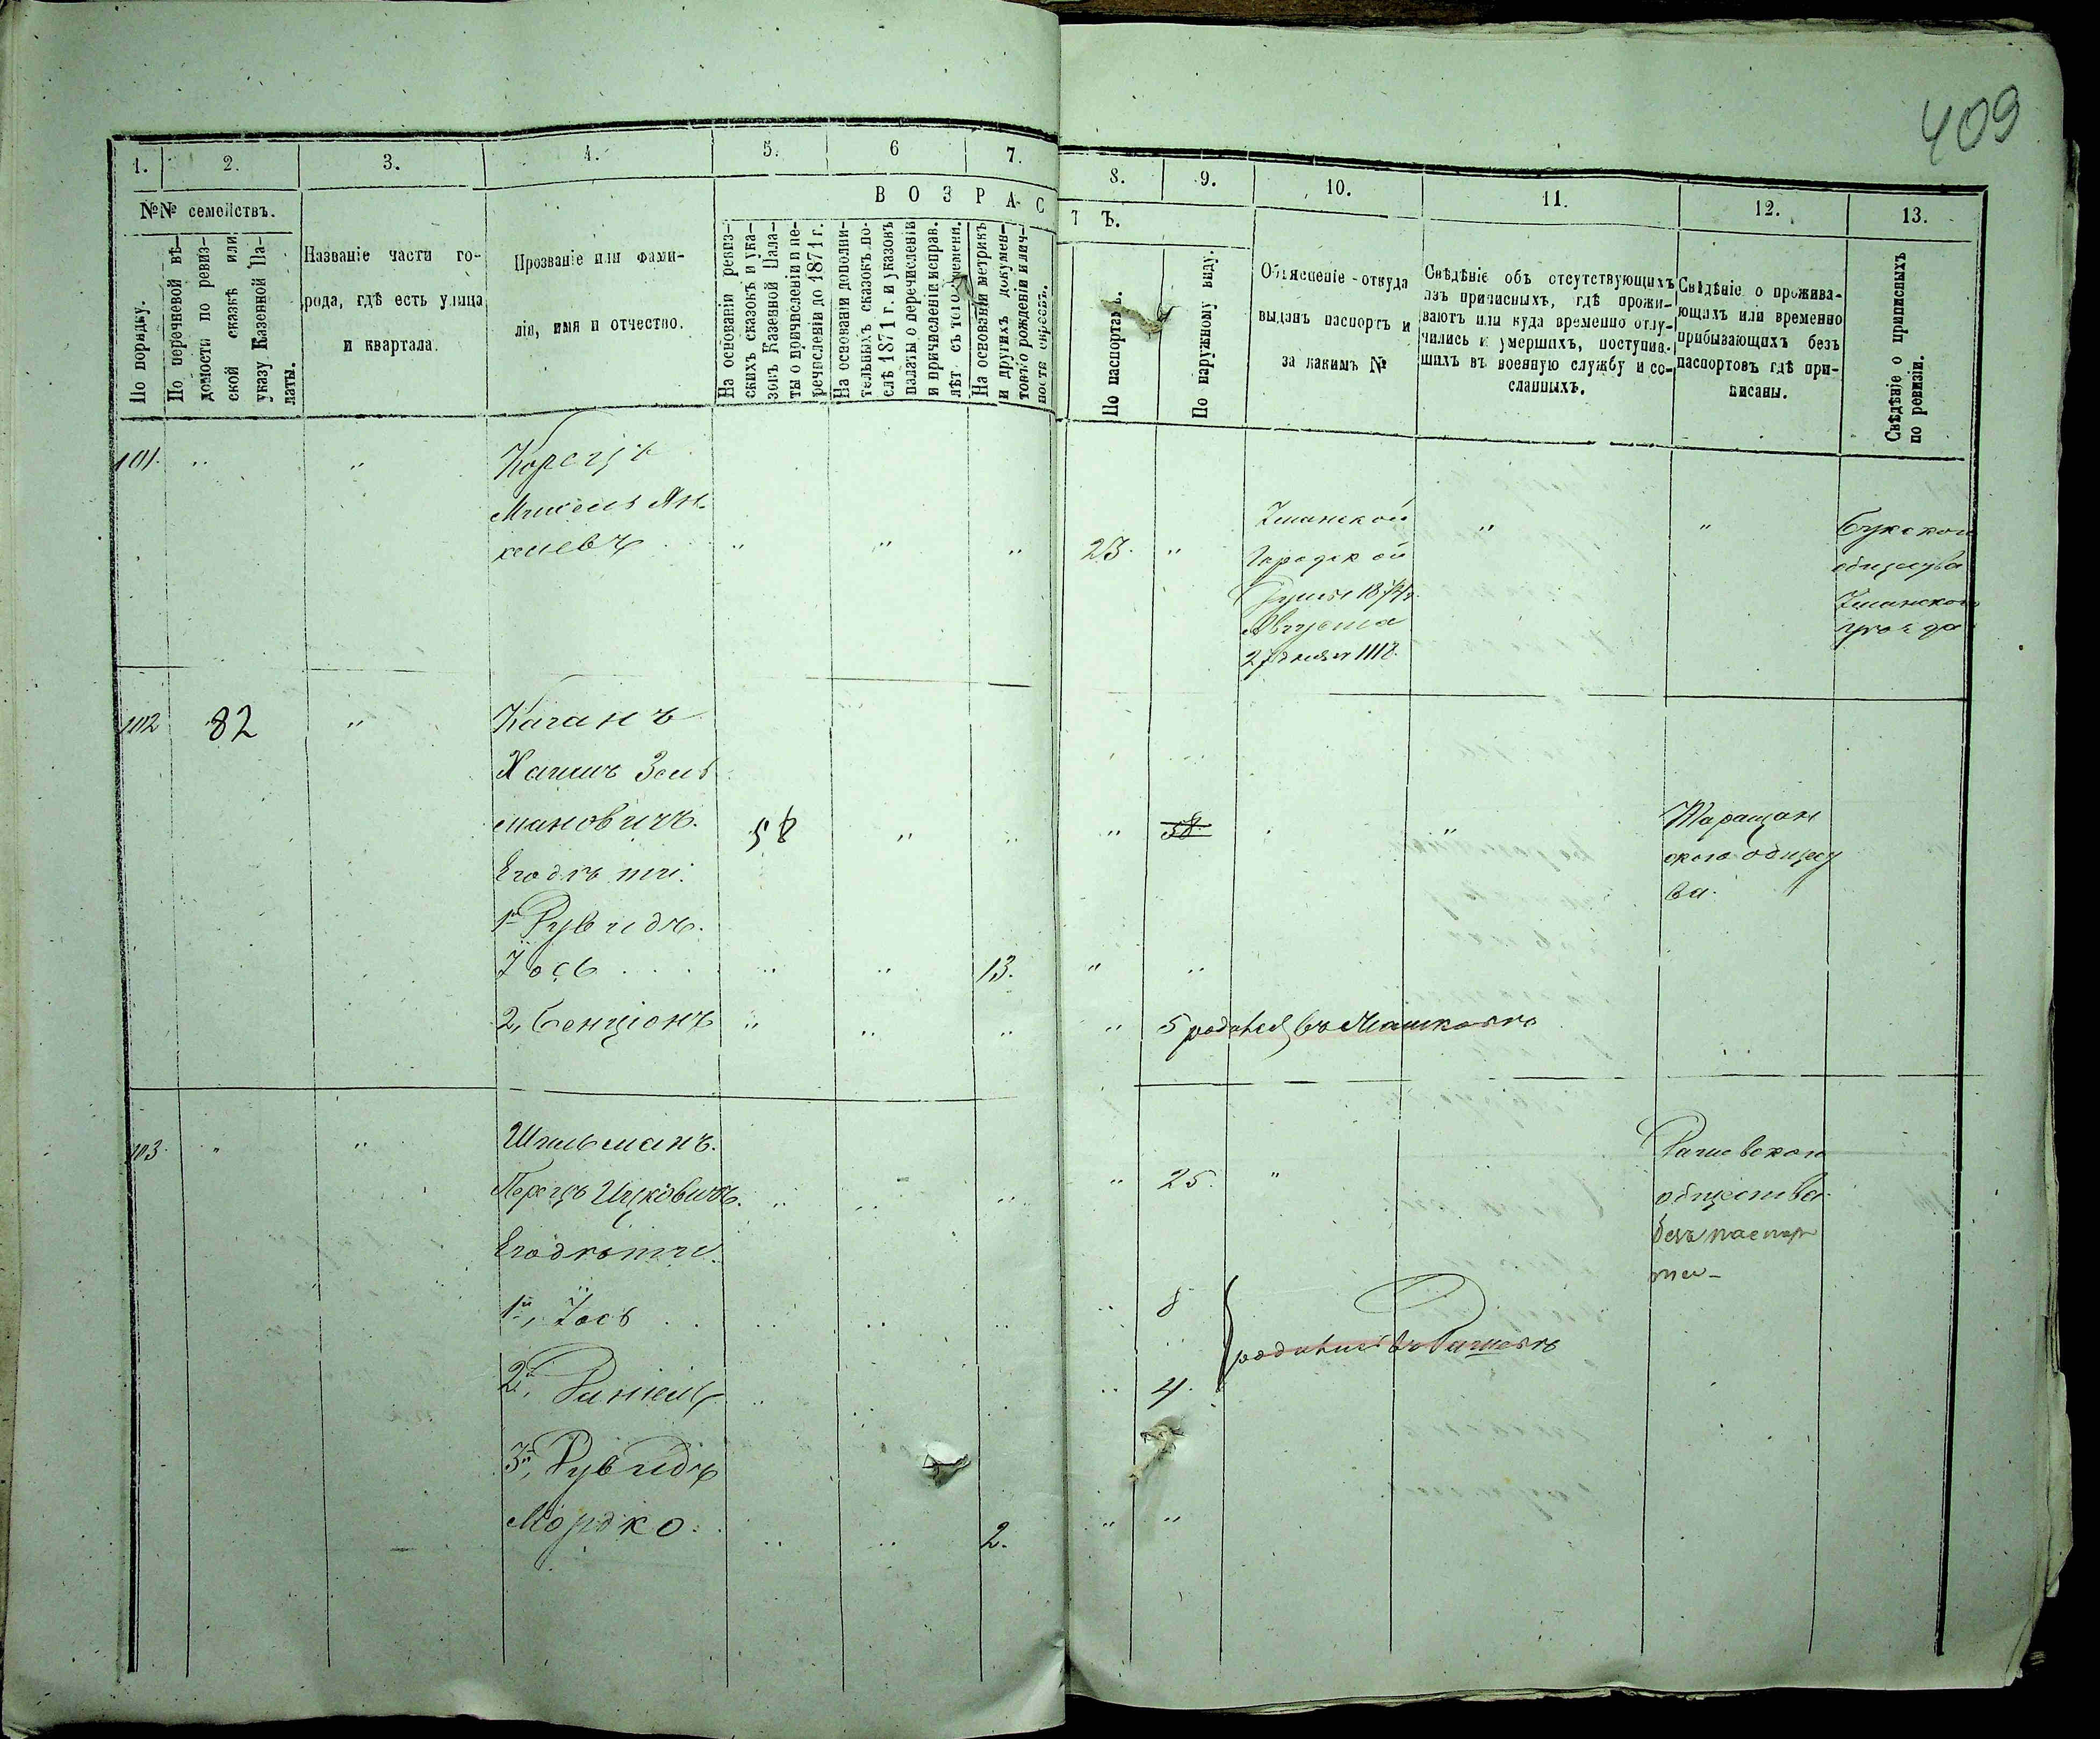 409
1. 2. 3. 4. 5. 6 7. 8. 9. 10. 11. 12. 13.
№№ семействъ.
В О З Р А С Т Ъ.
По порядку.
По перечневой вѣ-
домости по ревиз-
ской сказкѣ или
указу Казенной Па-
латы.
Названіе части го-
рода, гдѣ есть улица
и квартала.
Прозваніе или фами-
лія, имя и отчество.
На основаніи ревиз-
скихъ сказокъ и ука-
зовъ Казенной Пала-
ты о причисленіи и пе-
речисленіи до 1871 г.
На основаніи дополни-
тельныхъ сказокъ по-
слѣ 1871 г. и указовъ
палаты о перечисленіи
и причисленіи исправ.
лѣт съ того времени.
На основаніи метрикъ
и другихъ докумен-
товъ о рожденіи и лич-
ности
По паспортамъ.
По наружному виду.
Объясненіе - откуда
выданъ паспортъ и
за какимъ №
Свѣдѣніе объ отсутствующихъ
изъ приписныхъ, гдѣ прожи-
ваютъ или куда временно отлу-
чились и умершихъ, поступив-
шихъ въ военную службу и со-
сланныхъ.
Свѣдѣніе о прожива-
ющихъ или временно
прибывающихъ безъ
паспортовъ гдѣ при-
писаны.
Свѣдѣніе о приписныхъ
по ревизіи.
101. " "
Корецъ
Мошель Ян-
келевъ " " " 23. "
Уманской
Городской
Думы 1874 г.
Августа
27 дня № 1112.
" "
Букского
общества
Уманского
уѣзда
102 82 "
Каганъ
Хаимъ Зель
мановичъ. 58 " " " 58.
Его дѣти:
1й Рувидъ.
Іось " " 13. " "
2, Бенціонъ " " " " 5 родился въ Машковѣ
Таращан
ского общест
ва.
103. " "
Шпильманъ.
Перецъ Ицковичъ. " " " " 25. "
Его дѣти.
1й, Іось " " " " 8
2й, " " " 4.
3й, Рувидъ
Мордко. " " 2. " "
общества
безъ паспор
та-